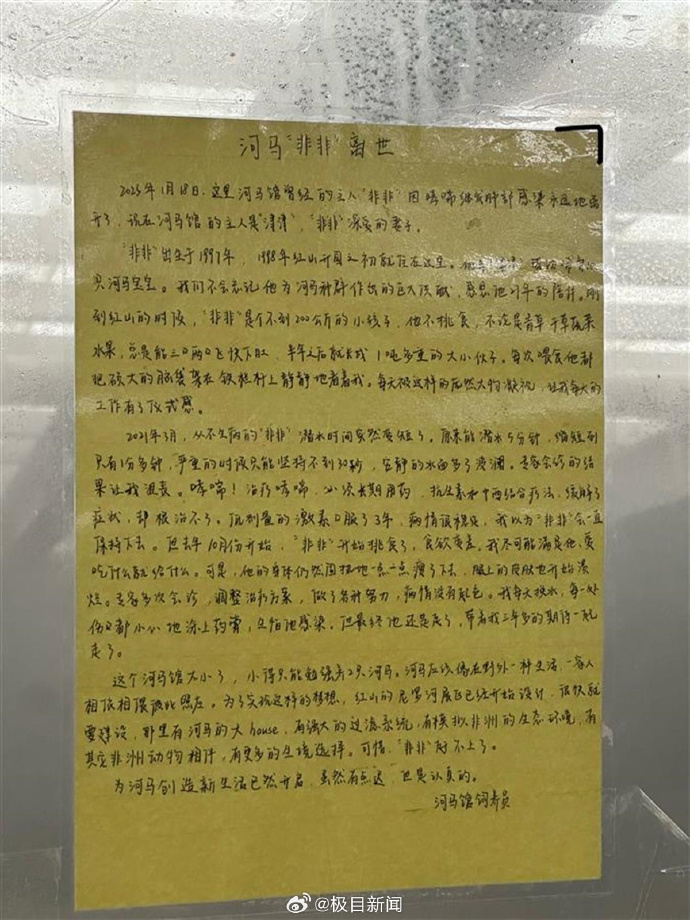 河马“非非”离世
2025年1月18日，这里河马馆曾经的主人“非非”因哮喘继发肺部感染永远地离
开了，现在河马馆的主人是“津津”，“非非”深爱的妻子。
“非非”出生于1997年，1998年红山开园之初就住在这里。
只河马宝宝。我们不会忘记他为河马种群作出的巨大贡献，感恩他27年的陪伴。刚
到红山的时候，“非非”是个不到200公斤的小伙子，他不挑食，不论是青草干草蔬菜
水果，总是能三口两口飞快下肚，半年之后就长成1吨多重的大小伙子。每次喂食他都
把硕大的脑袋架在铁栏杆上静静地看着我。每天被这样的庞然大物凝视，让我每天的
工作有了仪式感。
2021年3月，从不生病的“非非”潜水时间突然变短了。原来能潜水5分钟，缩短到
只有1分多钟，严重的时候只能坚持不到30秒，安静的水面多了波澜。专家会诊的结
果让我沮丧。哮喘！治疗哮喘，必须长期用药，抗生素和中西结合疗法，缓解了
症状，却根治不了。低剂量的激素口服了3年，病情很稳定，我以为“非非”会一直
保持下去。但去年10月份开始，“非非”开始挑食了，食欲变差。我尽可能满足他，爱
吃什么就给什么。可是，他的身体仍然固执地一点一点瘦了下去，腿上的皮肤也开始溃
烂。专家多次会诊，调整治疗方案，做了各种努力，病情没有起色。我每天换水，每一处
伤口都小心地涂上药膏，生怕他感染。但最终他还是走了，带着我三年多的期待一起
走了。
这个河马馆太小了，小得只能勉强养2只河马。河马应该偏在野外一种生活，一家人
相依相偎彼此照应。为了实现这样的梦想，红山的尼罗河展区已经开始设计，很快就
要建设，那里有河马的大house，有强大的过滤系统，有模拟非洲的生态环境，有
其它非洲动物相伴，有更多的生境选择。可惜，“非非”时不上了。
为河马创造新生活已然开启，虽然有点迟，但是认真的。
河马馆饲养员
@极目新闻